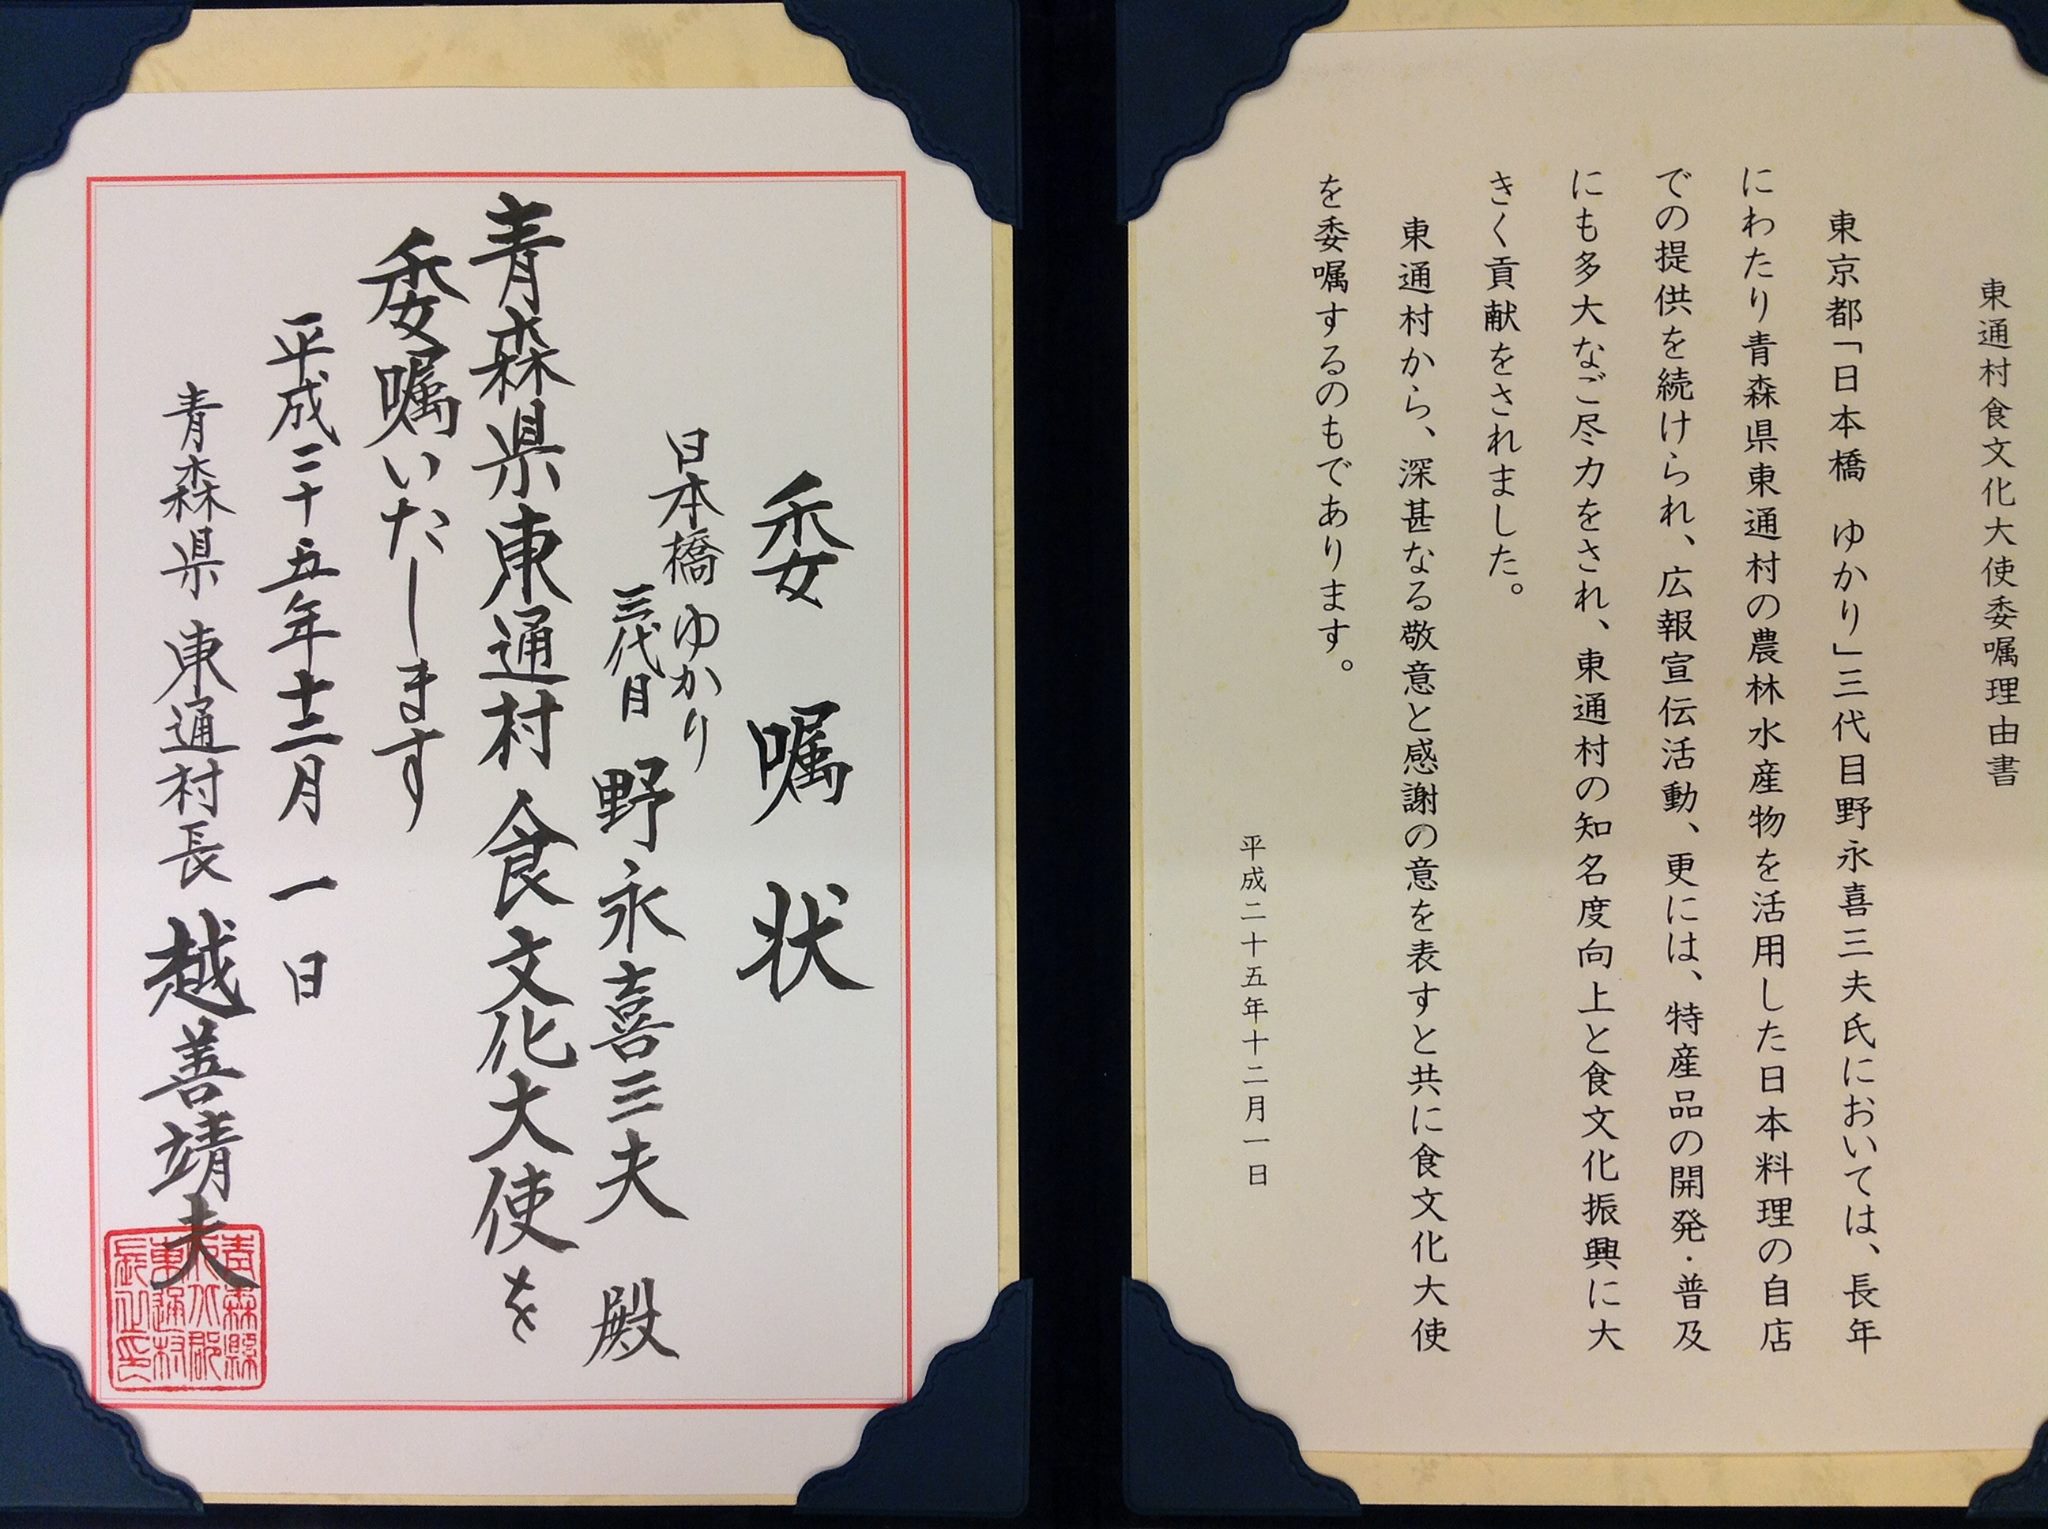 東通村食文化大使委嘱理由書
東京都「日本橋 ゆかり」三代目野永喜三夫氏においては、長年
にわたり青森県東通村の農林水産物を活用した日本料理の自店
での提供を続けられ、広報宣伝活動、更には、特産品の開発・普及
にも多大なご尽力をされ、東通村の知名度向上と食文化振興に大
きく貢献をされました。
東通村から、深甚なる敬意と感謝の意を表すと共に食文化大使
を委嘱するのもであります。
平成二十五年十二月一日
委嘱状
日本橋 ゆかり
三代目 野永喜三夫 殿
青森県東通村 食文化大使を
委嘱いたします
平成二十五年十二月一日
青森県 東通村長 越善靖夫
青森縣
下北郡
東通村
長之印